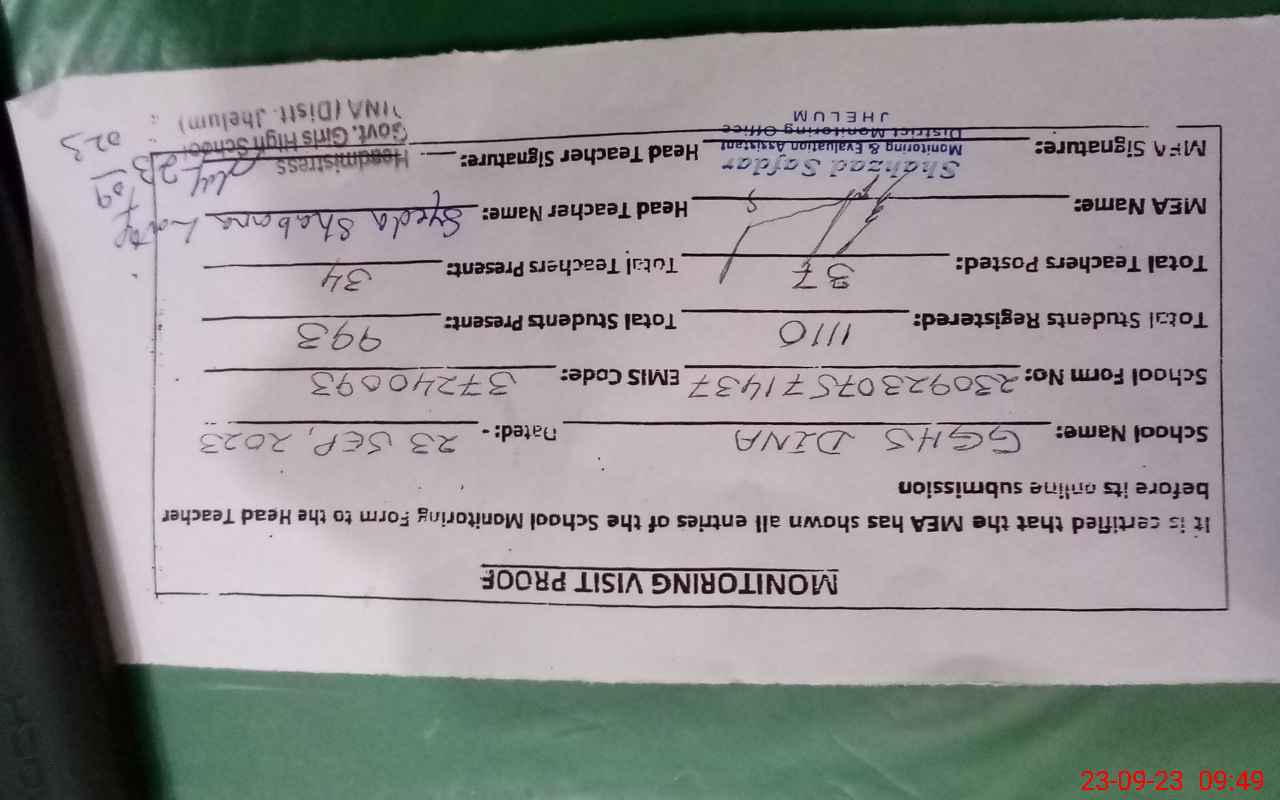 MONITORING VISIT PROOF
It is certified that the MEA has shown all entries of the School Monitoring Form to the Head Teacher
before its online submission
School Name: GGHS DINA Dated:- 23 SEP, 2023
School Form No: 23092307571437 EMIS Code: 37240093
Total Students Registered: 1110 Total Students Present: 993
Total Teachers Posted: 37 Total Teachers Present: 34
MEA Name: Head Teacher Name: Syeda Shabana
MEA Signature: Shahzad Safdar Head Teacher Signature:
Monitoring & Evaluation Assistant
District Monitoring Office
JHELUM
Headmistress
Govt. Girls High School
DINA (Distt. Jhelum)
23-09-23 09:49